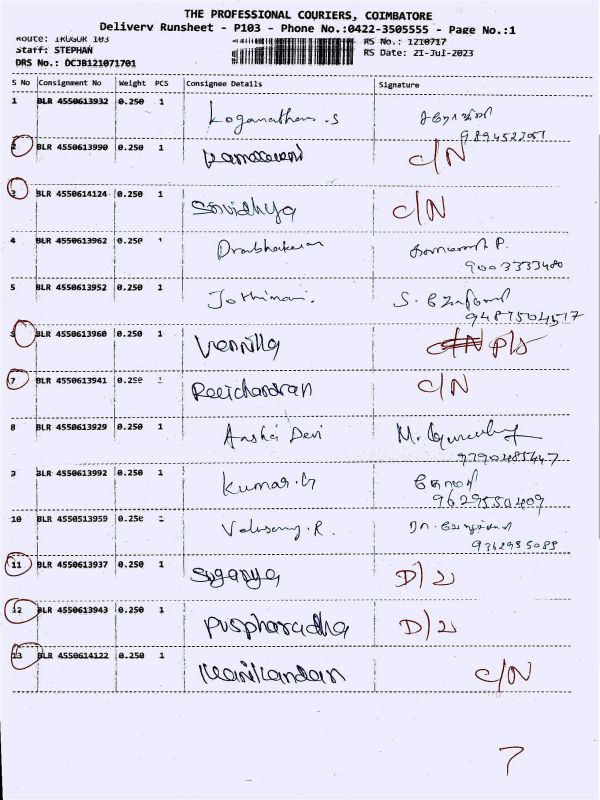 THE PROFESSIONAL COURIERS, COIMBATORE
Delivery Runsheet - P103 - Phone No.:0422-3505555 - Page No.:1
Route: IRUGUR 103
RS No.: 1210717
Staff: STEPHAN
RS Date: 21-Jul-2023
DRS No.: DCJB121071701
S No Consignment No Weight PCS Consignee Details Signature
1 BLR 4550613932 0.250 1 Loganathan.S
2 BLR 4550613990 1 0.250 C/N
3 BLR 4550614124 0.250 1 Srividhya C/N
4 BLR 4550613962 0.250 1 Prabhakaran P.
9003333480
5 BLR 4550613952 0.250 1 Jothimani. S.
9487504517
6 BLR 4550613960 0.250 1 Vennila C/N P/S
7 BLR 4550613941 0.250 C/N
8 BLR 4550613929 0.250 1 Devi M.
9790485447
9 BLR 4550613992 0.250 1 Kumar.G
9629550409
10 BLR 4550513959 0.250 R.
9362985083
11 BLR 4550613937 0.250 1 Suganya
12 BLR 4550613943 0.250 1 Puspharadha
13 BLR 4550614122 0.250 1 Manikandan C/N
7